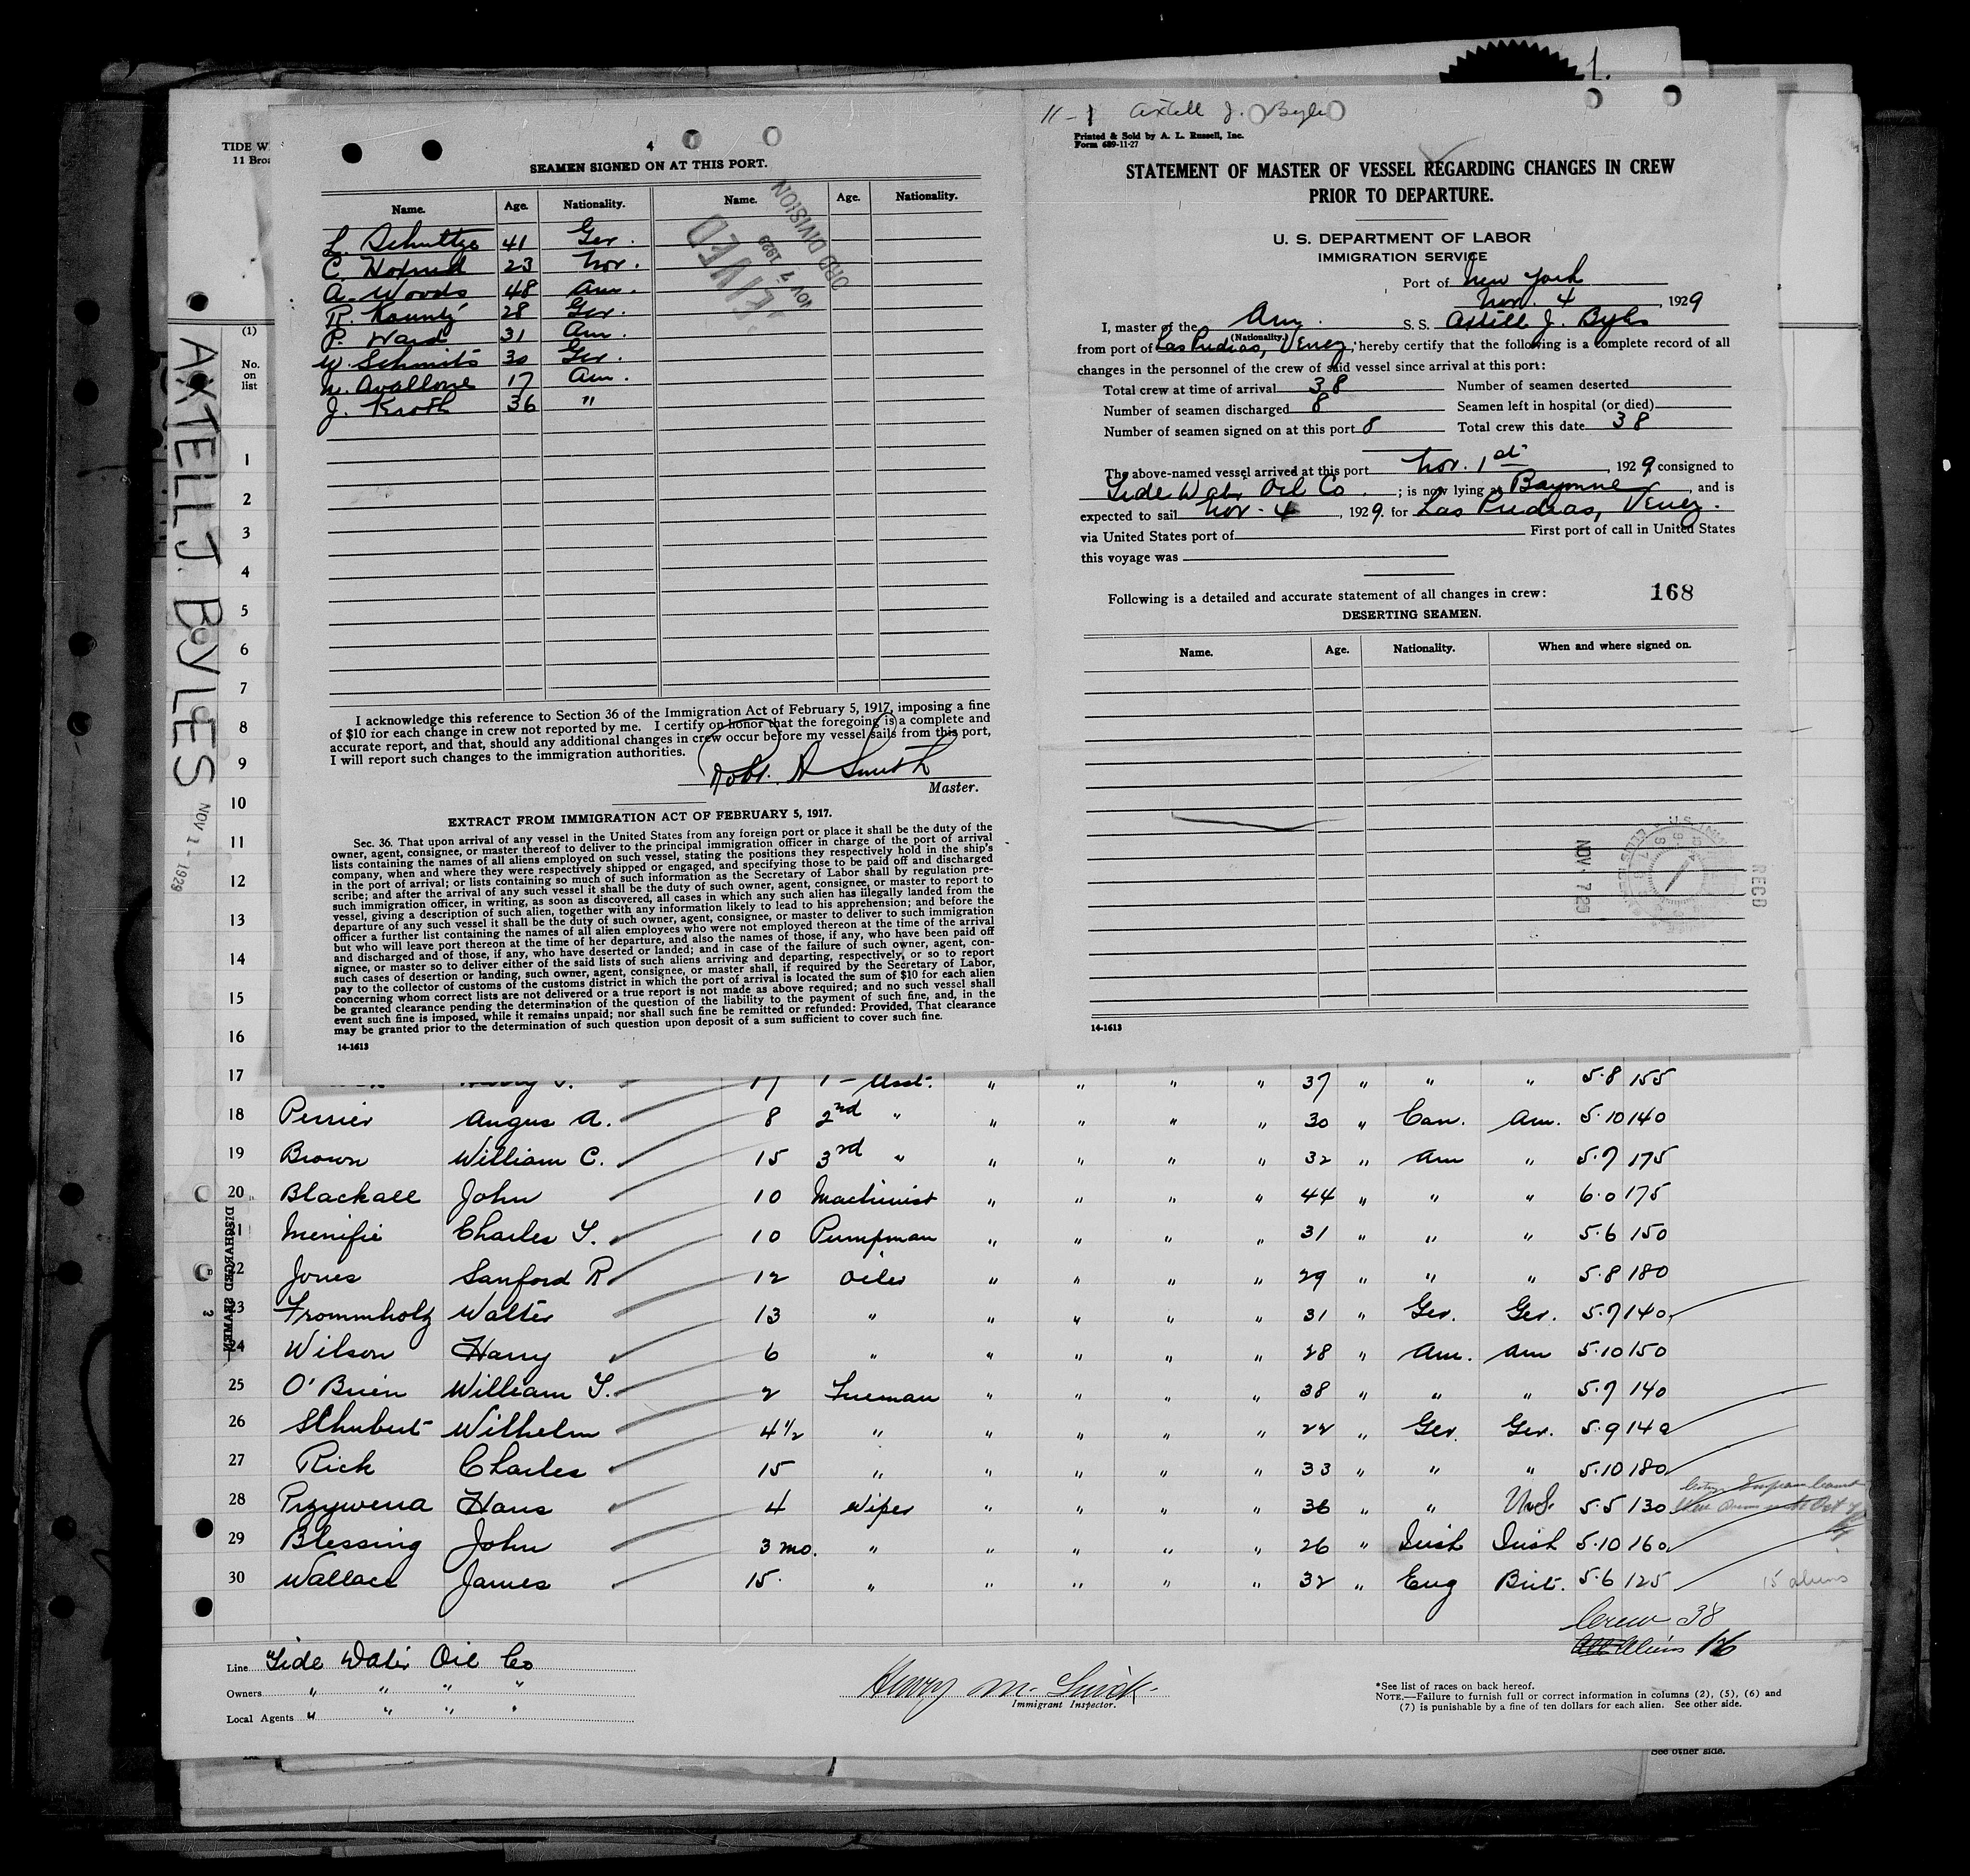 TIDE W
11 Broa
(1)
No.
on
list
AXTELL J. BYLES
NOV 1 - 1929
4
SEAMEN SIGNED ON AT THIS PORT.
Name. Age. Nationality. Name. Age. Nationality.
L. Schultze 41 Ger.
C. 23 Nor.
A. Woods 48 Am.
R. 28 Ger.
P. Ward 31 Am.
W. Schmits 30 Ger.
Avallone 17 Am.
J. Kroth 36 "
EIVED
NOV 7 1929
ORD DIVISION
I acknowledge this reference to Section 36 of the Immigration Act of February 5, 1917, imposing a fine
of $10 for each change in crew not reported by me. I certify on honor that the foregoing is a complete and
accurate report, and that, should any additional changes in crew occur before my vessel sails from this port,
I will report such changes to the immigration authorities.
Robt. A Smith
Master.
EXTRACT FROM IMMIGRATION ACT OF FEBRUARY 5, 1917.
Sec. 36. That upon arrival of any vessel in the United States from any foreign port or place it shall be the duty of the
owner, agent, consignee, or master thereof to deliver to the principal immigration officer in charge of the port of arrival
lists containing the names of all aliens employed on such vessel, stating the positions they respectively hold in the ship's
company, when and where they were respectively shipped or engaged, and specifying those to be paid off and discharged
in the port of arrival; or lists containing so much of such information as the Secretary of Labor shall by regulation pre-
scribe; and after the arrival of any such vessel it shall be the duty of such owner, agent, consignee, or master to report to
such immigration officer, in writing, as soon as discovered, all cases in which any such alien has illegally landed from the
vessel, giving a description of such alien, together with any information likely to lead to his apprehension; and before the
departure of any such vessel it shall be the duty of such owner, agent, consignee, or master to deliver to such immigration
officer a further list containing the names of all alien employees who were not employed thereon at the time of the arrival
but who will leave port thereon at the time of her departure, and also the names of those, if any, who have been paid off
and discharged and of those, if any, who have deserted or landed; and in case of the failure of such owner, agent, con-
signee, or master so to deliver either of the said lists of such aliens arriving and departing, respectively, or so to report
such cases of desertion or landing, such owner, agent, consignee, or master shall, if required by the Secretary of Labor,
pay to the collector of customs of the customs district in which the port of arrival is located the sum of $10 for each alien
concerning whom correct lists are not delivered or a true report is not made as above required; and no such vessel shall
be granted clearance pending the determination of the question of the liability to the payment of such fine, and, in the
event such fine is imposed, while it remains unpaid; nor shall such fine be remitted or refunded: Provided, That clearance
may be granted prior to the determination of such question upon deposit of a sum sufficient to cover such fine.
14-1613
1.
11-1 Axtell J. Byles
Printed & Sold by A. L. Russell, Inc.
Form 689-11-27
STATEMENT OF MASTER OF VESSEL REGARDING CHANGES IN CREW
PRIOR TO DEPARTURE.
U. S. DEPARTMENT OF LABOR
IMMIGRATION SERVICE
Port of New York
Nov. 4, 1929
I, master of the Am. S. S. Axtell J. Byles
(Nationality.)
from port of Las Piedras, Venez, hereby certify that the following is a complete record of all
changes in the personnel of the crew of said vessel since arrival at this port:
Total crew at time of arrival 38 Number of seamen deserted
Number of seamen discharged 8 Seamen left in hospital (or died)
Number of seamen signed on at this port 8 Total crew this date 38
The above-named vessel arrived at this port Nov. 1st, 1929, consigned to
Tide Water Oil Co.; is now lying at Bayonne, and is
expected to sail Nov. 4, 1929, for Las Piedras, Venez.
via United States port of First port of call in United States
this voyage was
Following is a detailed and accurate statement of all changes in crew: 168
DESERTING SEAMEN.
Name. Age. Nationality. When and where signed on.
NOV 7 29
REC'D
14-1613
1
2
3
4
5
6
7
8
9
10
11
12
13
14
15
16
17 17 1 - Asst. " " " " 37 " " " 5.8 155
18 Perrier Angus A. 8 2nd " " " " " 30 " Can. Am. 5.10 140
19 Brown William C. 15 3rd " " " " " 32 " Am " 5.7 175
20 Blackall John 10 Machinist " " " " 44 " " " 6.0 175
21 Menifie Charles T. 10 Pumpman " " " " 31 " " " 5.6 150
22 Jones Sanford R. 12 Oiler " " " " 29 " " " 5.8 180
23 Frommholz Walter 13 " " " " " 31 " Ger. Ger. 5.7 140
24 Wilson Harry 6 " " " " " 28 " Am. Am 5.10 150
25 O'Brien William T. 2 Fireman " " " " 38 " " " 5.7 140
26 Schubert Wilhelm 4 1/2 " " " " " 22 " Ger. Ger. 5.9 140
27 Rick Charles 15 " " " " " 33 " " " 5.10 180
28 Przywerra Hans 4 Wiper " " " " 36 " " U.S. 5.5 130
29 Blessing John 3 mo. " " " " " 26 " Irish Irish 5.10 160
30 Wallace James 15. " " " " " 32 " Eng Brit. 5.6 125 15 aliens
DISCHARGED SEAMEN
3
Crew 38
Aliens 16
Line Tide Water Oil Co
Owners " " " "
Local Agents " " " "
Henry
Immigrant Inspector.
*See list of races on back hereof.
NOTE.—Failure to furnish full or correct information in columns (2), (5), (6) and
(7) is punishable by a fine of ten dollars for each alien. See other side.
See other side.